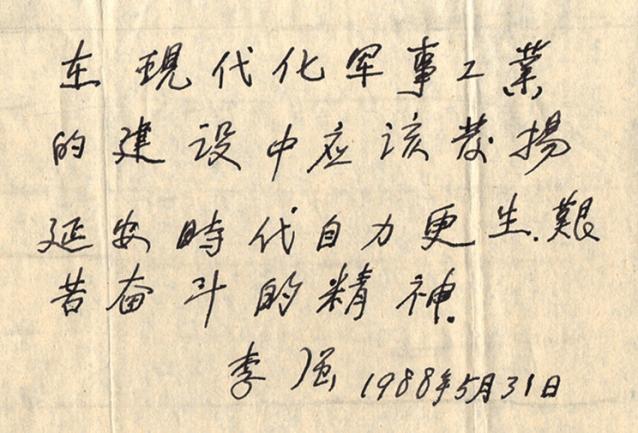 在現代化军事工業
的建设中应该发揚
延安時代自力更生.艱
苦奋斗的精神.
李强 1988年5月31日